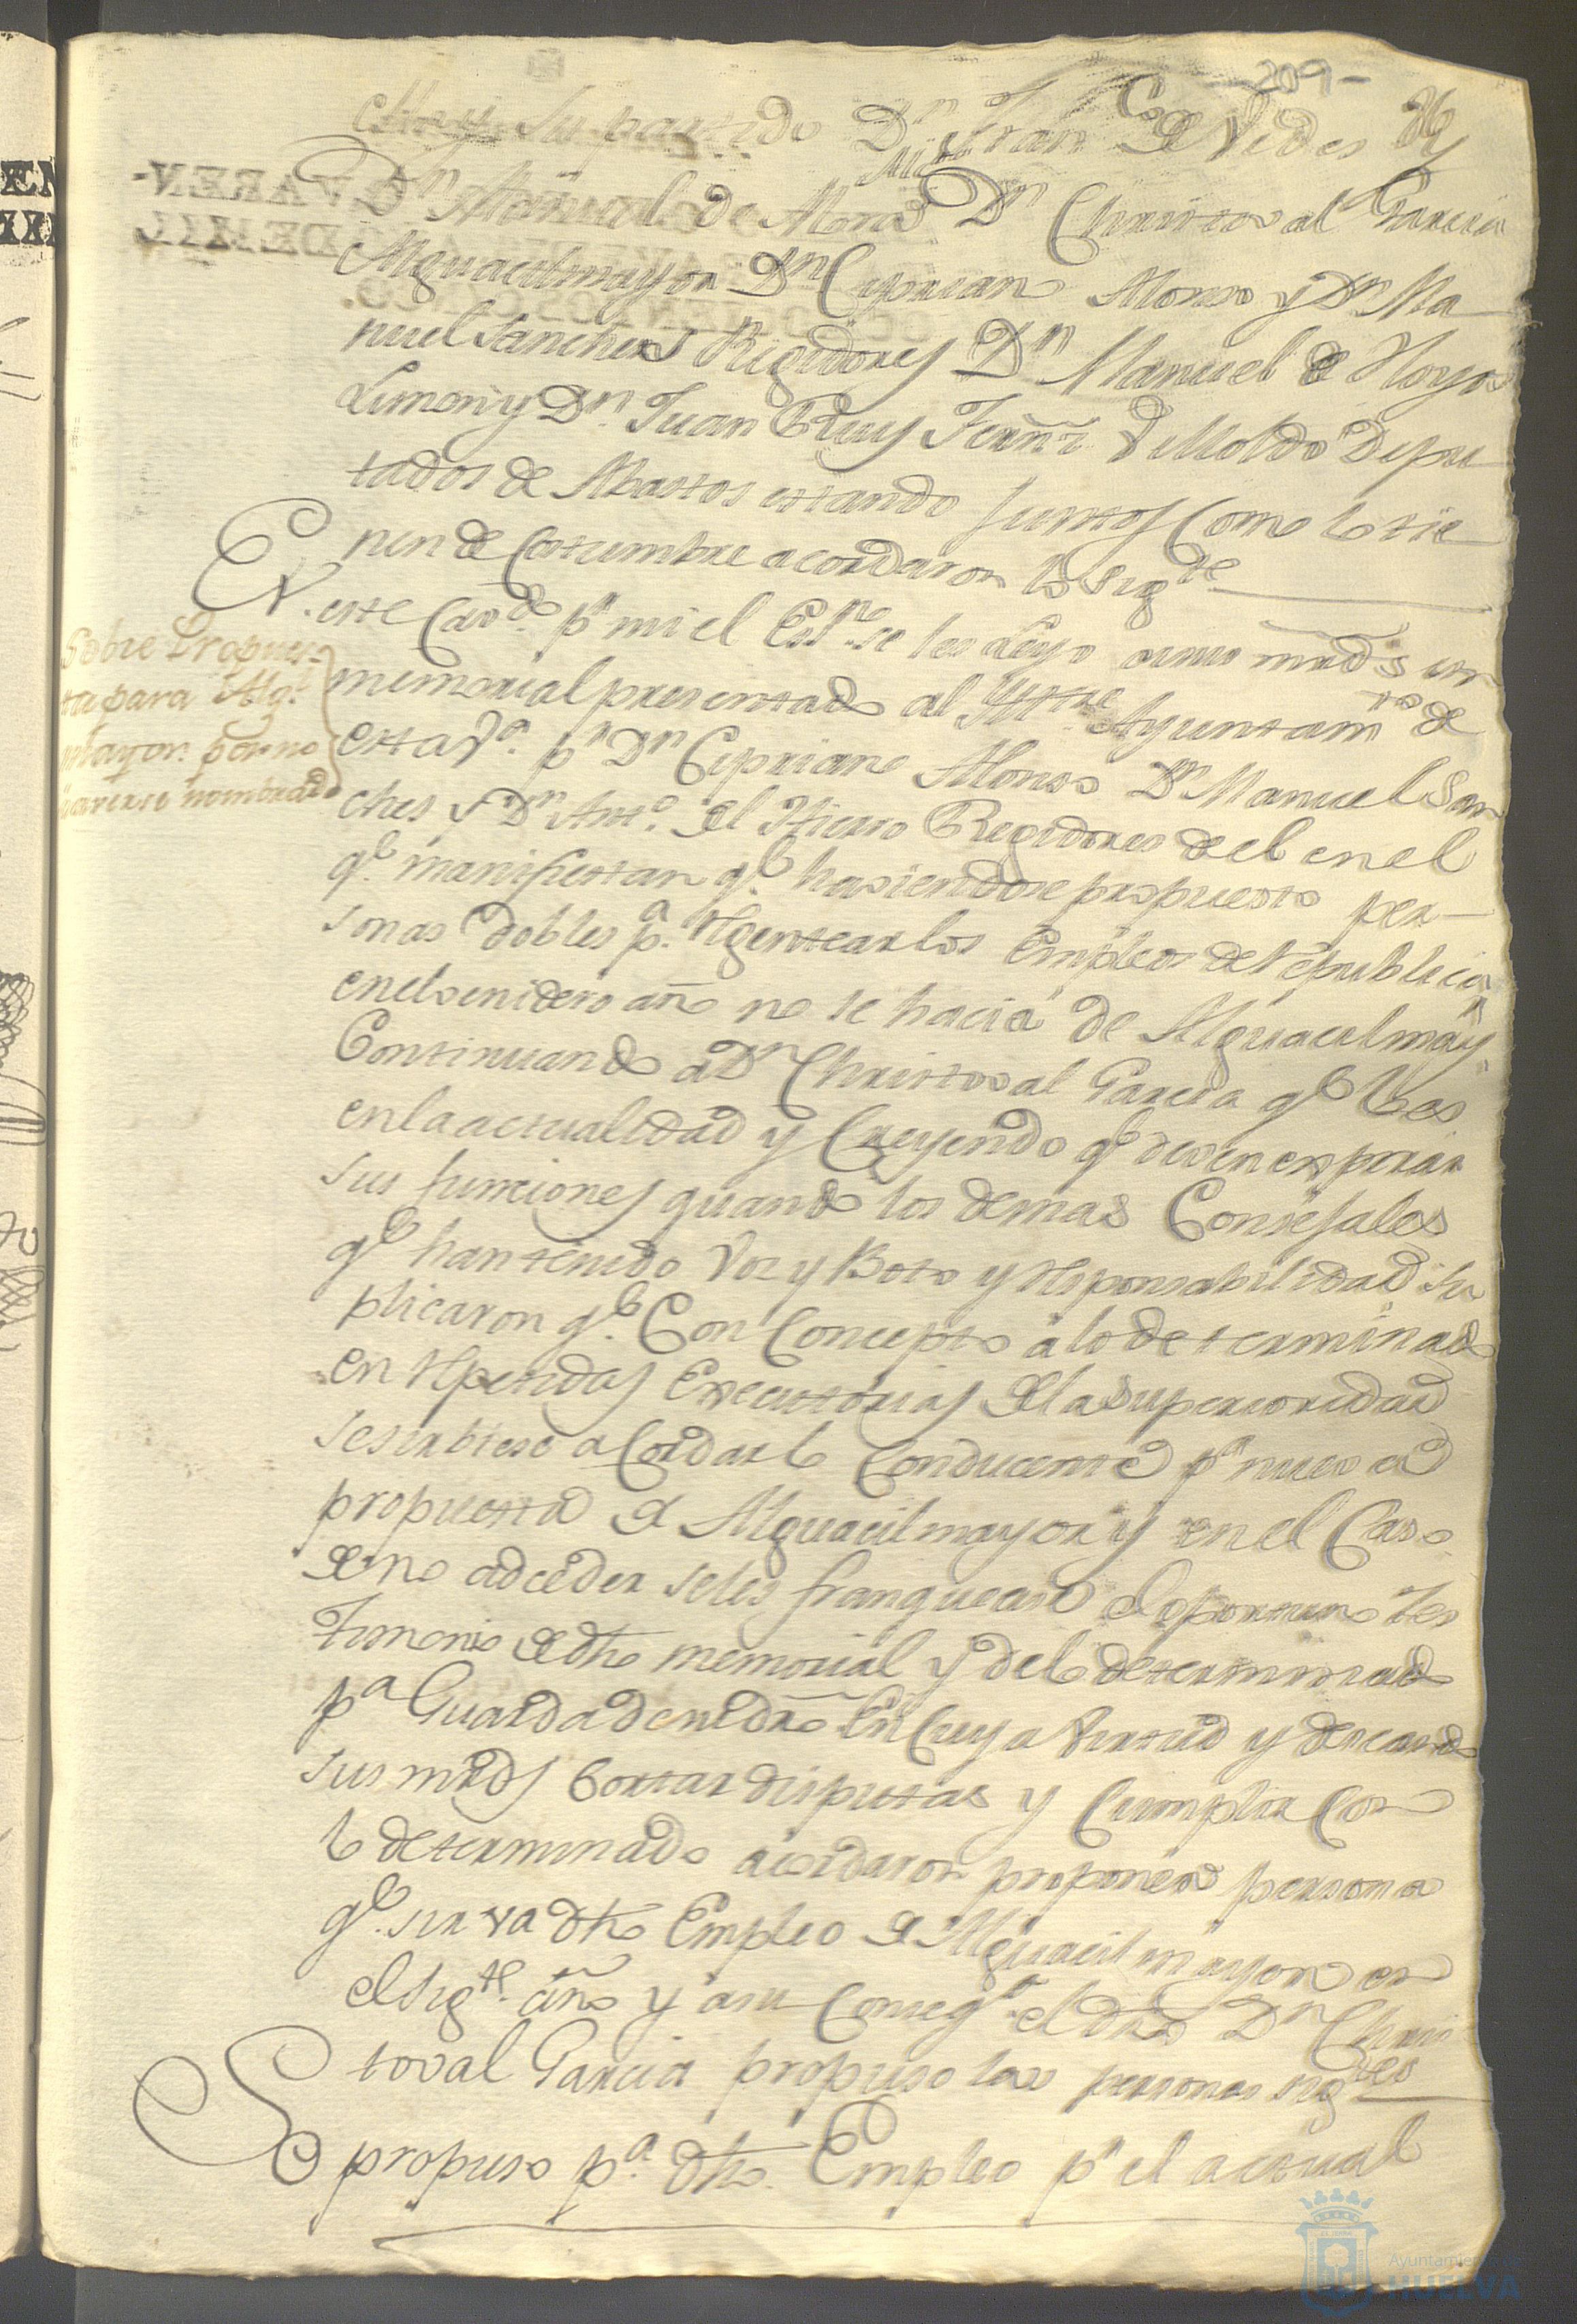 -209-
su partido Dn Fran.co de Vides
Dn Manuel de Mora Dn Christoval Garcia
Alguacilmayor Dn Ciprian Alonso y Dn Ma
nuel Sanches Regidores Dn Manuel de Hoyos
Limon y Dn Juan Ruy Fernz Delloldo Depu
tados de Abastos estando Juntos Como lo tie
nen de Costumbre acordaron lo sigte
En este Cavdo pr mi el Esno se les Leyo a sus mrds un
Sobre Propues-
ta para Algl
mayor por no
haverse nombrado
memorial presentado al Iltre Ayuntamto de
esta Va. pr Dn Cipriano Alonso Dn Manuel San
ches y Dn Anto. del Hierro Regidores del en el
qe. manifiestan qe. haviendose propuesto per-
sonas dobles pa. Rgentear los Empleos de Republica
en el venidero año no se hacia de Alguacilmayr
Continuando a Dn Christoval Garcia qe lo es
en la actualidad y Creyendo qe deven expirar
sus funciones quando los demas Consejales
qe han tenido Voz y Boto y responsabilidad su
plicaron qe. Con Concepto a lo determinado
en repetidas Executorias de la superioridad
se sirbiese aCordar lo Conducente pa nueva
propuesta de Alguacilmayor y en el Caso
de no adceder se les franquease el oportuno tes
timonio de dho memorial y de lo determinado
pa Guarda de su dro En Cuya virtud y deseando
sus mrds Cortar disputas y Cumplir Con
lo determinado acordaron proponer persona
qe. sirva dho Empleo de Alguacil mayor en
el sigte. año y a su Conseqa el dho Dn Chris
toval Garcia propuso las personas sigtes
Se propuso pa. dho. Empleo pr el actual
Ayuntamiento de
HUELVA